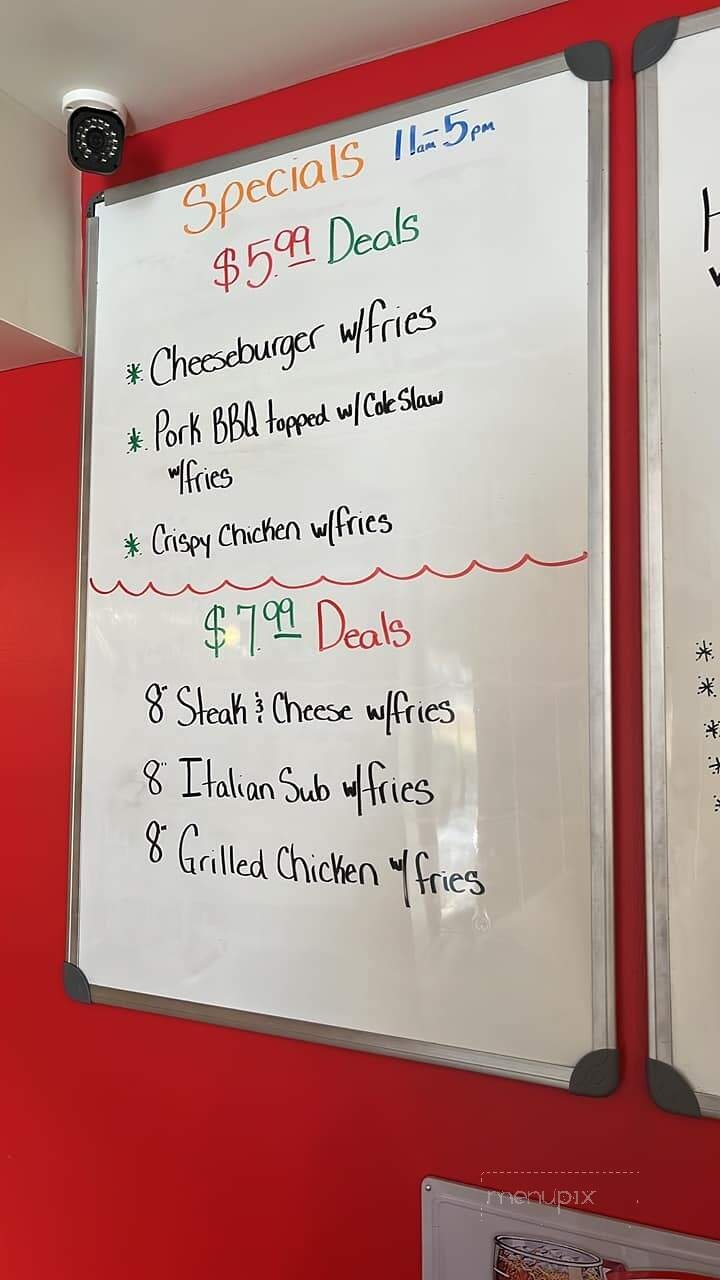 Specials 11am-5pm
$5.99 Deals
* Cheeseburger w/fries
* Pork BBQ topped w/Cole Slaw
w/fries
* Crispy Chicken w/fries
$7.99 Deals
8" Steak & Cheese w/fries
8" Italian Sub w/fries
8" Grilled Chicken w/fries
menupix